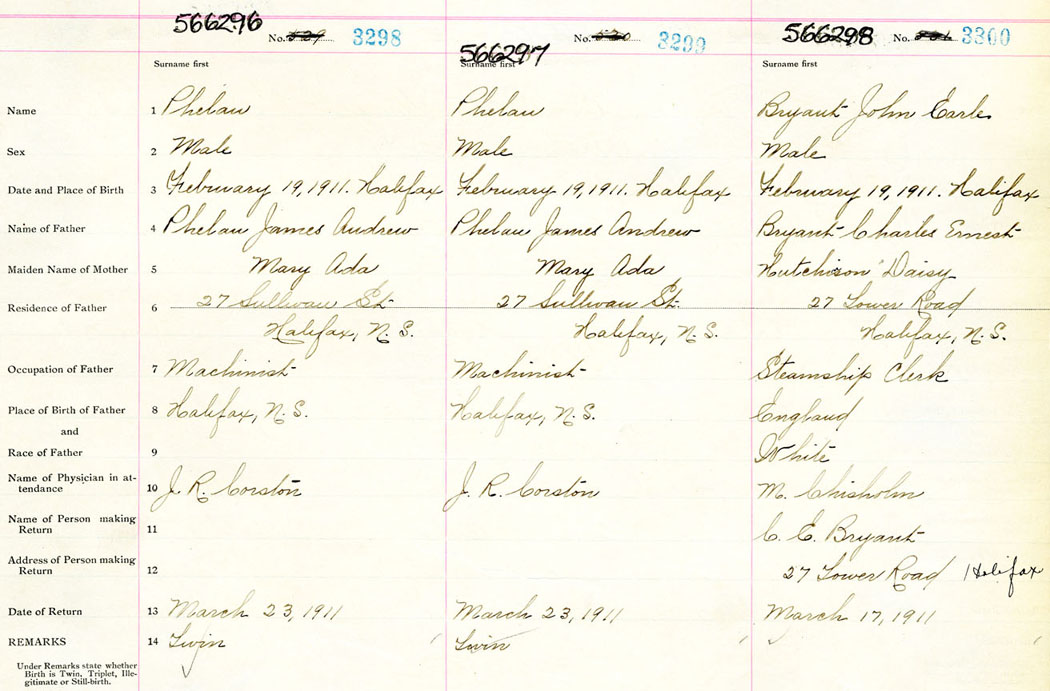 566296 No. 3298
566297 No. 3299
566298 No. 3300
Surname first Surname first Surname first
Name 1 Phelan Phelan Bryant John Earle
Sex 2 Male Male Male
Date and Place of Birth 3 February 19, 1911. Halifax February 19, 1911. Halifax February 19, 1911. Halifax
Name of Father 4 Phelan James Andrew Phelan James Andrew Bryant Charles Ernest
Maiden Name of Mother 5 Mary Ada Mary Ada Hutchison Daisy
Residence of Father 6 27 Sullivan St. 27 Sullivan St. 27 Lower Road
Halifax, N.S. Halifax, N.S. Halifax, N.S.
Occupation of Father 7 Machinist Machinist Steamship Clerk
Place of Birth of Father 8 Halifax, N.S. Halifax, N.S. England
and
Race of Father 9 White
Name of Physician in at-
tendance 10 J. R. Corston J. R. Corston M. Chisholm
Name of Person making
Return 11 C. E. Bryant
Address of Person making
Return 12 27 Lower Road Halifax
Date of Return 13 March 23, 1911 March 23, 1911 March 17, 1911
REMARKS 14 Twin Twin
Under Remarks state whether
Birth is Twin, Triplet, Ille-
gitimate or Still-birth.